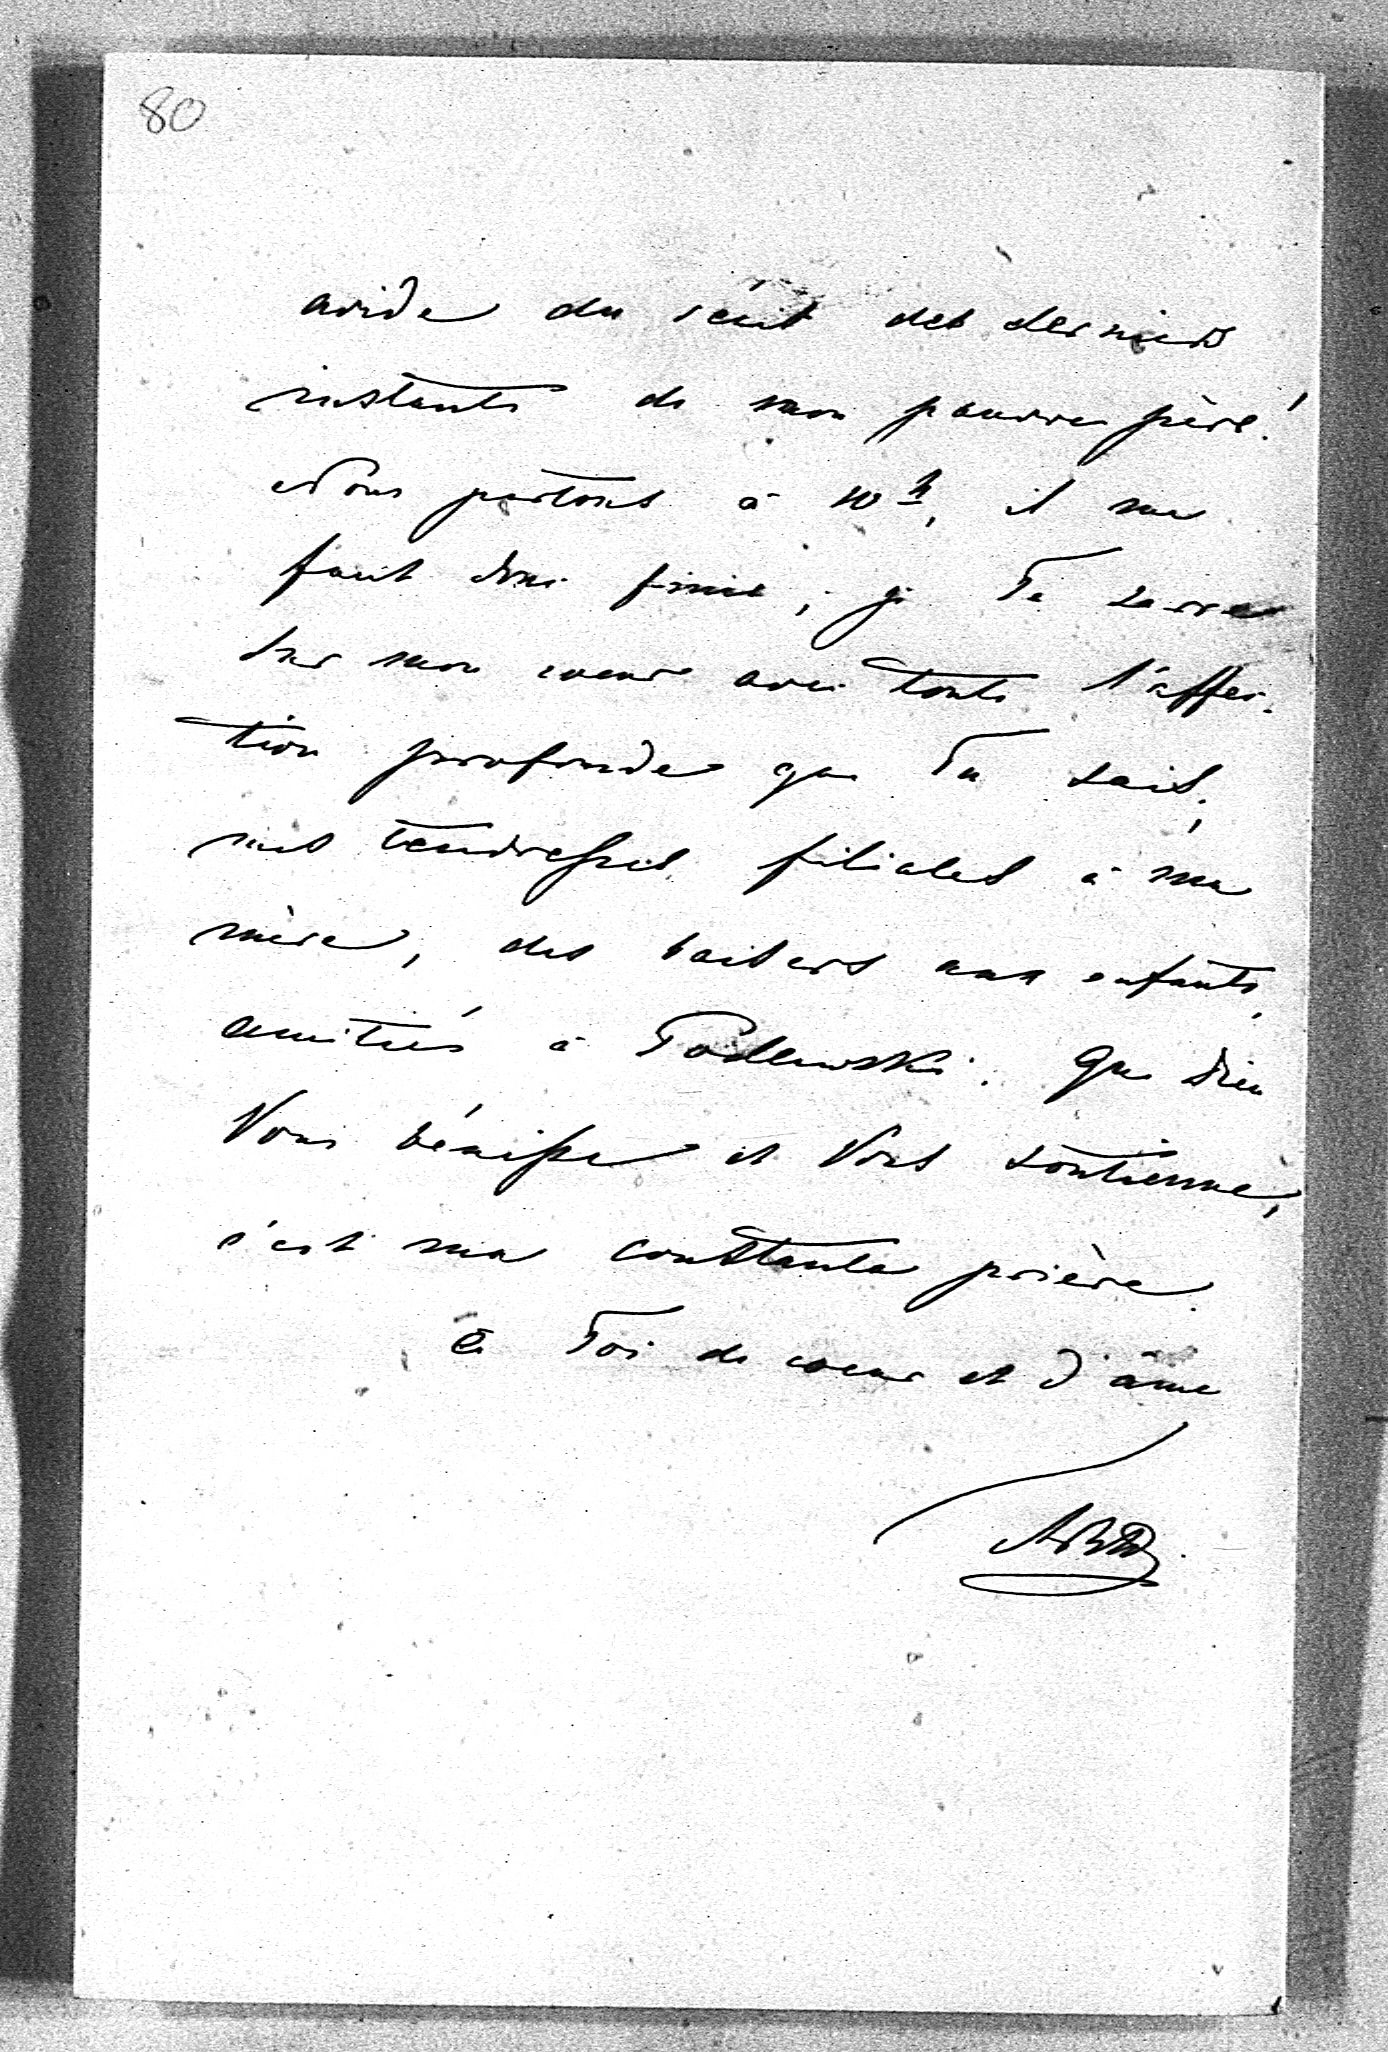 80
avide du récit des derniers
instants de mon pauvre père!
Nous partons à 10h, il me
faut donc finir, je Te serre
sur mon coeur avec toute l'affec-
tion profonde que Tu sais,
mes tendresses filiales à ma
mère, des baisers aux enfants,
amitiés à Podlewski. Que Dieu
Vous bénisse et Vous soutienne,
c'est ma constante prière.
à Toi de coeur et d'âme